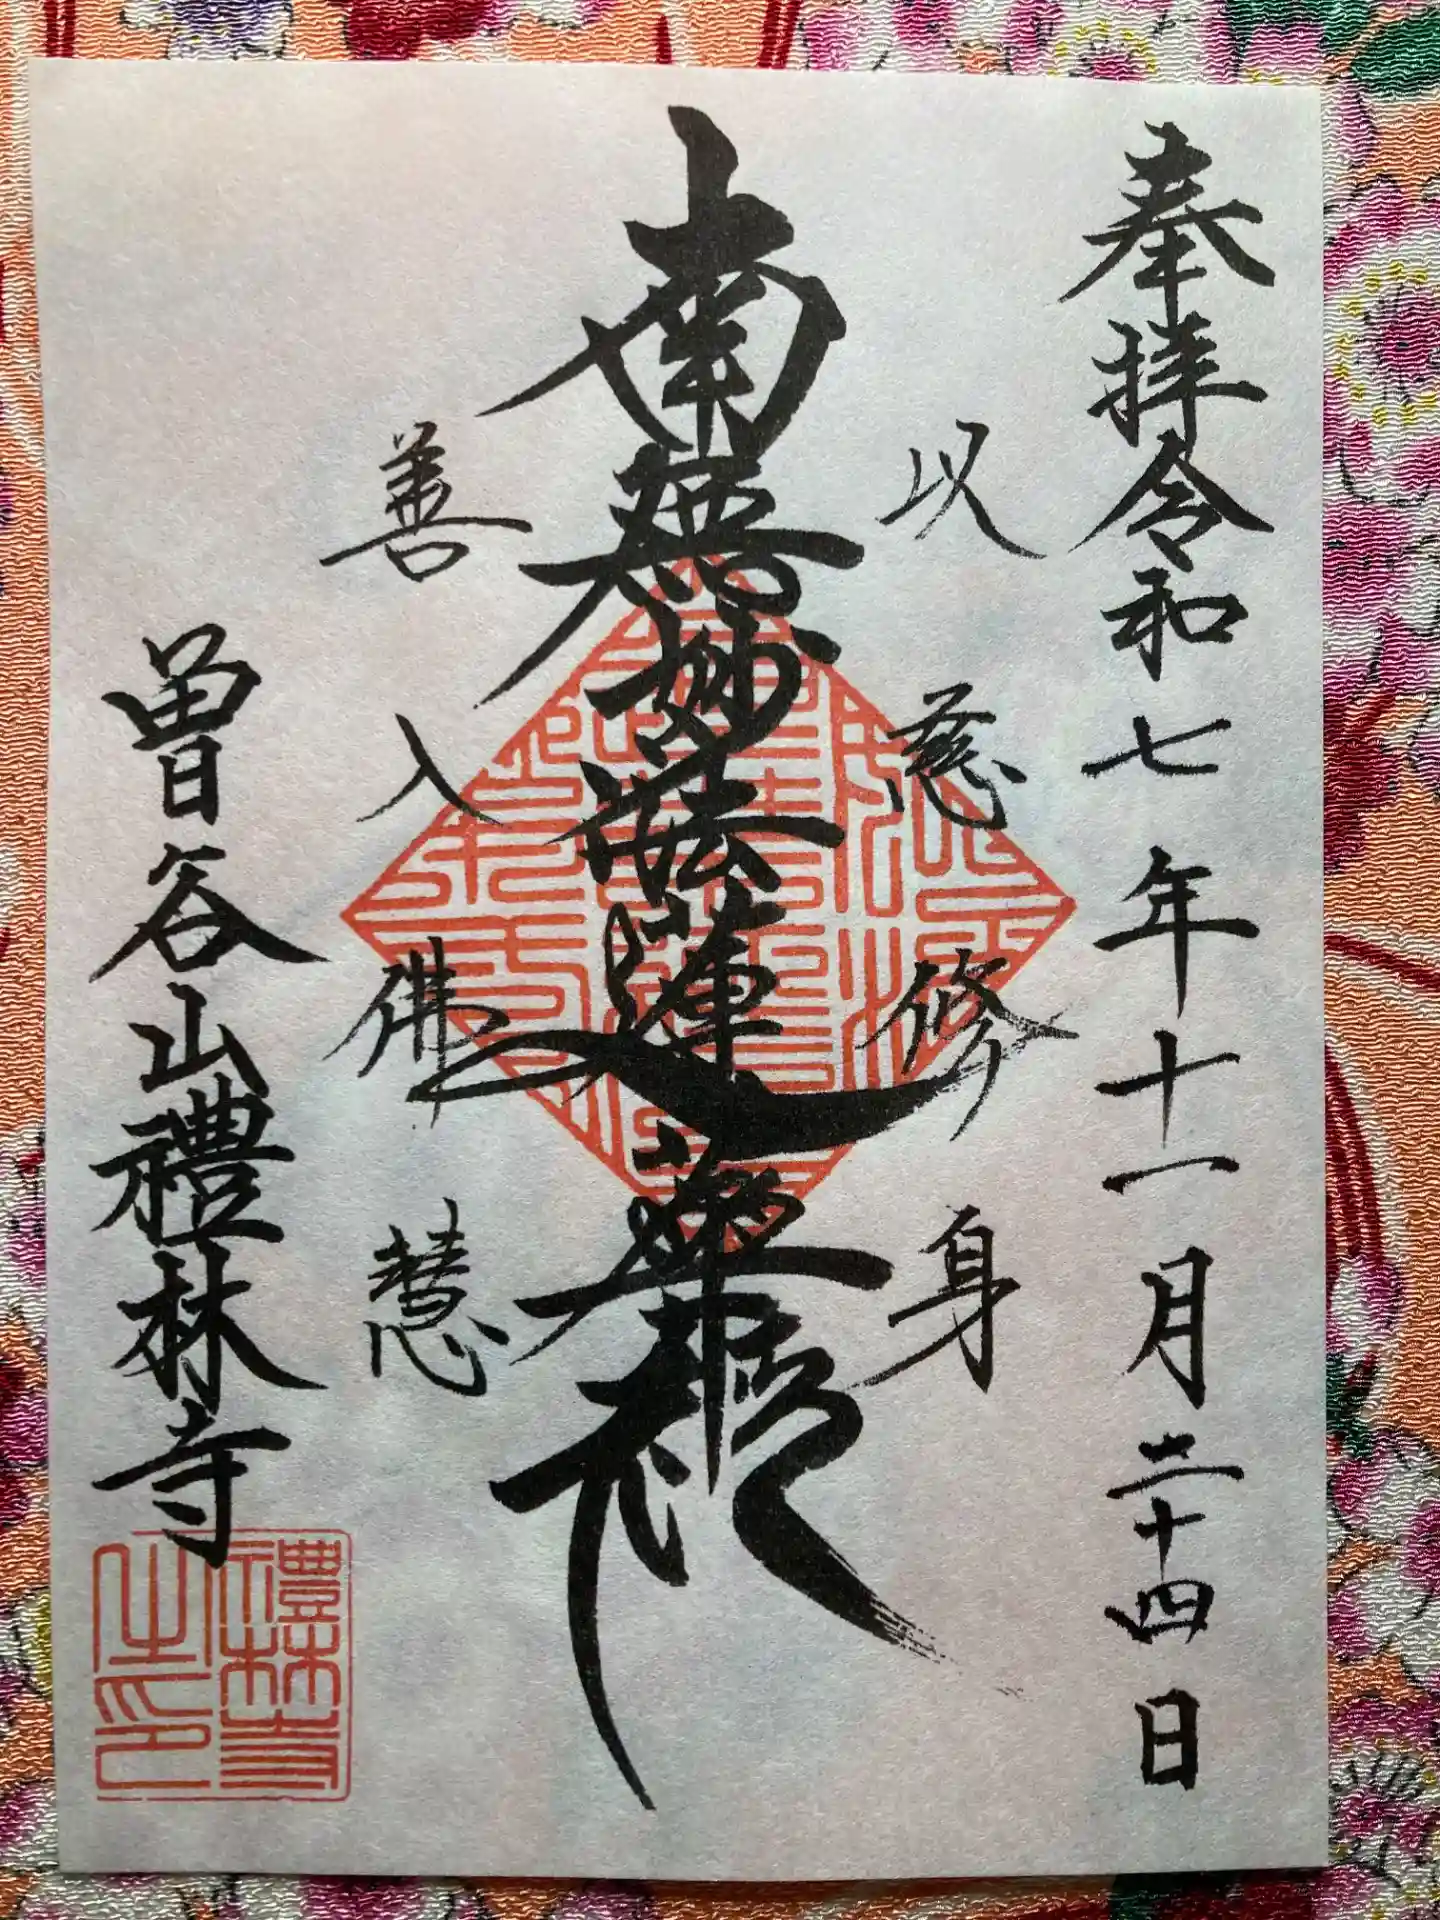 奉拝令和七年十一月二十四日
以慈修身
南無妙法蓮華経
善入佛慧
曽谷山禮林寺
禮林寺
之印